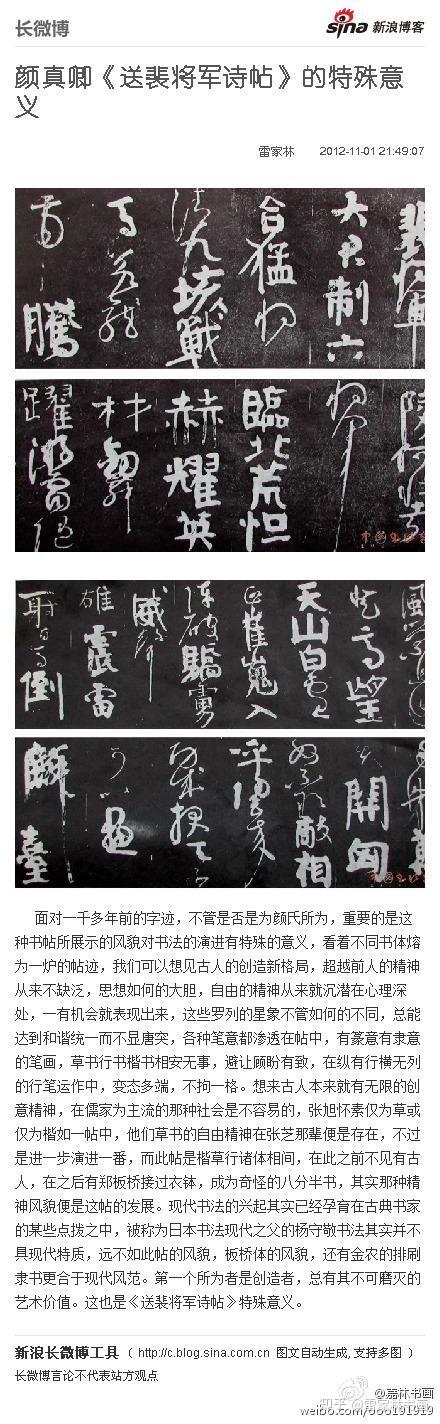 长微博
sina 新浪博客
颜真卿《送裴将军诗帖》的特殊意
义
雷家林 2012-11-01 21:49:07
裴将军
大君制六
合猛将
清九垓战
马若龙
虎腾
陵何壮哉
将军
临北荒怛
赫耀英
材剑舞
跃游电随
风萦且
回登高望
天山白云
正崔嵬入
阵破骄虏
威声
雄震雷
射百马倒
再射万夫开匈
奴不敢敌相
呼归去来
功成报天
子可以画
麟台
面对一千多年前的字迹，不管是否是为颜氏所为，重要的是这
种书帖所展示的风貌对书法的演进有特殊的意义，看着不同书体熔
为一炉的帖迹，我们可以想见古人的创造新格局，超越前人的精神
从来不缺泛，思想如何的大胆，自由的精神从来就沉潜在心理深
处，一有机会就表现出来，这些罗列的星象不管如何的不同，总能
达到和谐统一而不显唐突，各种笔意都渗透在帖中，有篆意有隶意
的笔画，草书行书楷书相安无事，避让顾盼有致，在纵有行横无列
的行笔运作中，变态多端，不拘一格。想来古人本来就有无限的创
意精神，在儒家为主流的那种社会是不容易的，张旭怀素仅为草或
仅为楷如一帖中，他们草书的自由精神在张芝那辈便是存在，不过
是进一步演进一番，而此帖是楷草行诸体相间，在此之前不见有古
人，在之后有郑板桥接过衣钵，成为奇怪的八分半书，其实那种精
神风貌便是这帖的发展。现代书法的兴起其实已经孕育在古典书家
的某些点拨之中，被称为日本书法现代之父的杨守敬书法其实并不
具现代特质，远不如此帖的风貌，板桥体的风貌，还有金农的排刷
隶书更合于现代风范。第一个所为者是创造者，总有其不可磨灭的
艺术价值。这也是《送裴将军诗帖》特殊意义。
新浪长微博工具（ http://c.blog.sina.com.cn 图文自动生成, 支持多图 ）
长微博言论不代表站方观点
@嘉林书画
知乎 @雷家林书画
weibo.com/600191919